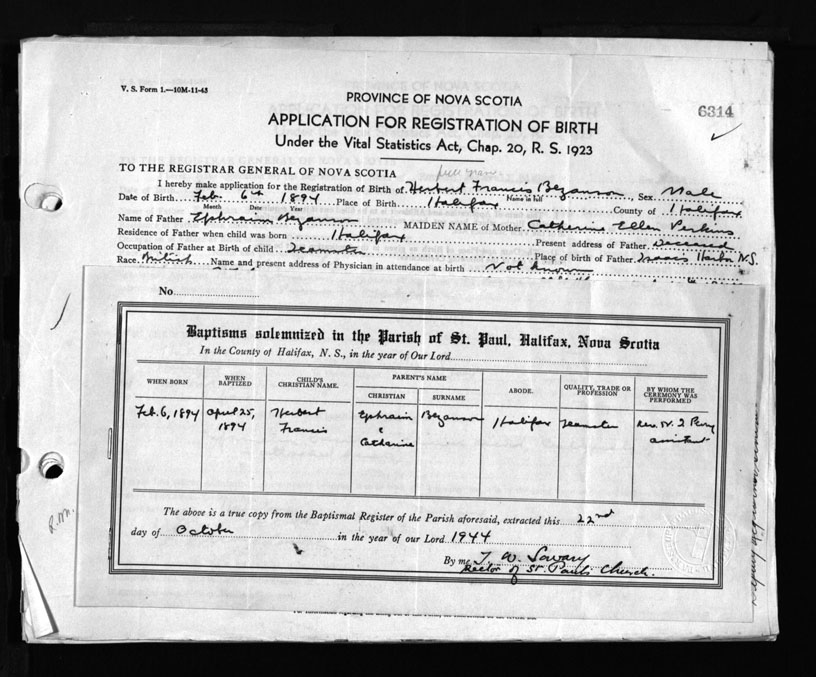 V. S. Form 1.—10M-11-43
PROVINCE OF NOVA SCOTIA
6314
APPLICATION FOR REGISTRATION OF BIRTH
Under the Vital Statistics Act, Chap. 20, R. S. 1923
TO THE REGISTRAR GENERAL OF NOVA SCOTIA
full name
I hereby make application for the Registration of Birth of Herbert Francis Bezanson Sex Male
Name in full
Date of Birth Feb. 6th 1894 Place of Birth Halifax County of Halifax
Month Date Year
Name of Father Ephraim Bezanson MAIDEN NAME of Mother Catherine Ellen Perkins
Residence of Father when child was born Halifax Present address of Father Deceased
Occupation of Father at Birth of child Teamster Place of birth of Father Isaacs Harbor N.S.
Race British Name and present address of Physician in attendance at birth Not known
No.
Baptisms solemnized in the Parish of St. Paul, Halifax, Nova Scotia
In the County of Halifax, N. S., in the year of Our Lord
WHEN BORN WHEN BAPTIZED CHILD'S CHRISTIAN NAME. PARENT'S NAME CHRISTIAN SURNAME ABODE. QUALITY, TRADE OR PROFESSION BY WHOM THE CEREMONY WAS PERFORMED
Feb. 6, 1894 April 25, 1894 Herbert Francis Ephraim & Catharine Bezanson Halifax Teamster Rev. N. I Perry assistant
The above is a true copy from the Baptismal Register of the Parish aforesaid, extracted this 22nd
day of October in the year of our Lord 1944
By me T. W. Savary
Rector of St. Paul's Church.
R.M.